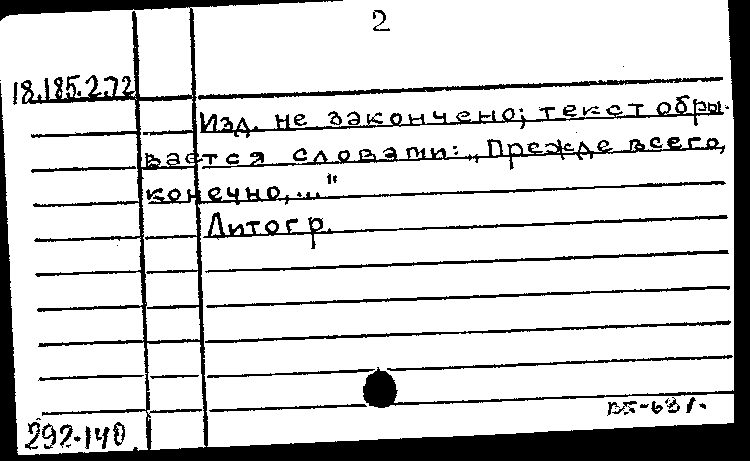 2
18.185.2.72
Изд. не закончено; текст обры-
вается словами: „Прежде всего,
конечно,..."
Литогр.
292-140